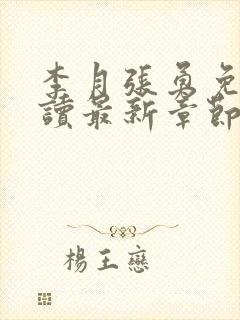 李月張勇免
讀最新章節
楊王戀